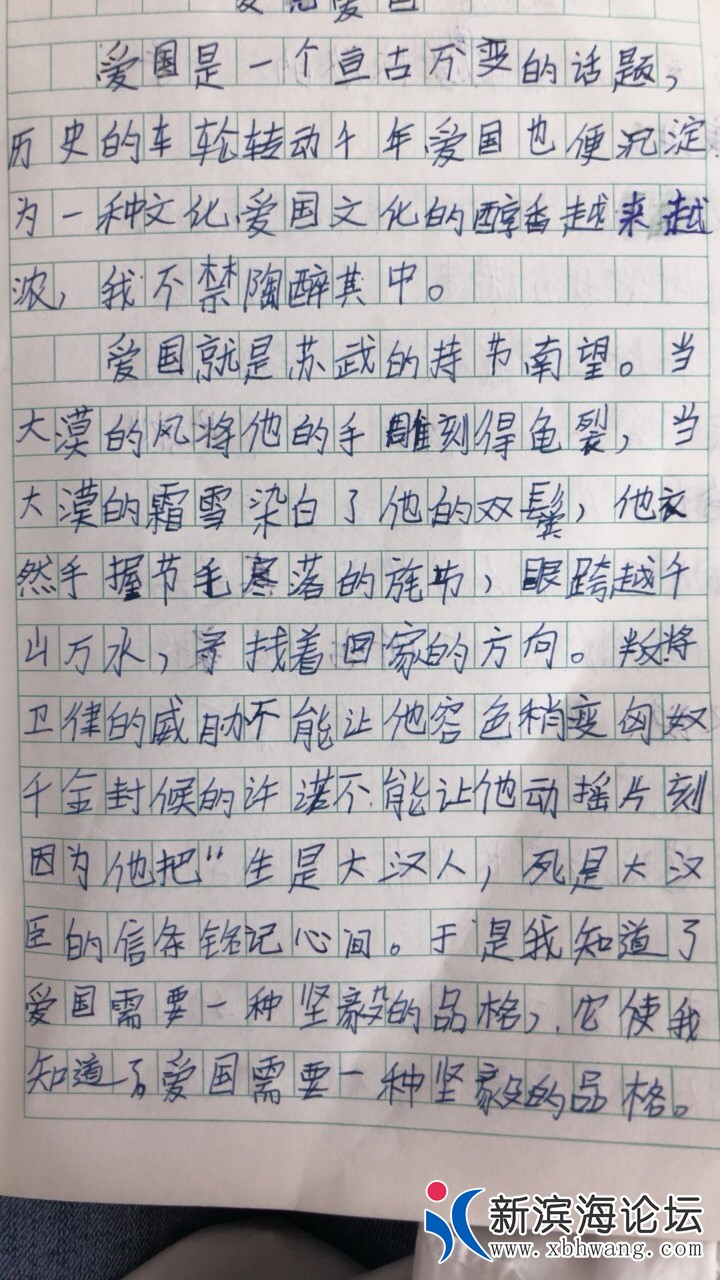 爱国是一个亘古万变的话题，
历史的车轮转动千年爱国也便沉淀
为一种文化爱国文化的醇香越来越
浓，我不禁陶醉其中。
爱国就是苏武的持节南望。当
大漠的风将他的手雕刻得龟裂，当
大漠的霜雪染白了他的双鬓，他衣
然手握节毛落的旄节，眼跨越千
山万水，寻找着回家的方向。叛将
卫律的威胁不能让他容色稍变匈奴
千金封候的许诺不能让他动摇片刻
因为他把“生是大汉人，死是大汉
臣的信条铭记心间。于是我知道了
爱国需要一种坚毅的品格，它使我
知道了爱国需要一种坚毅的品格。
新滨海论坛
www.xbhwang.com